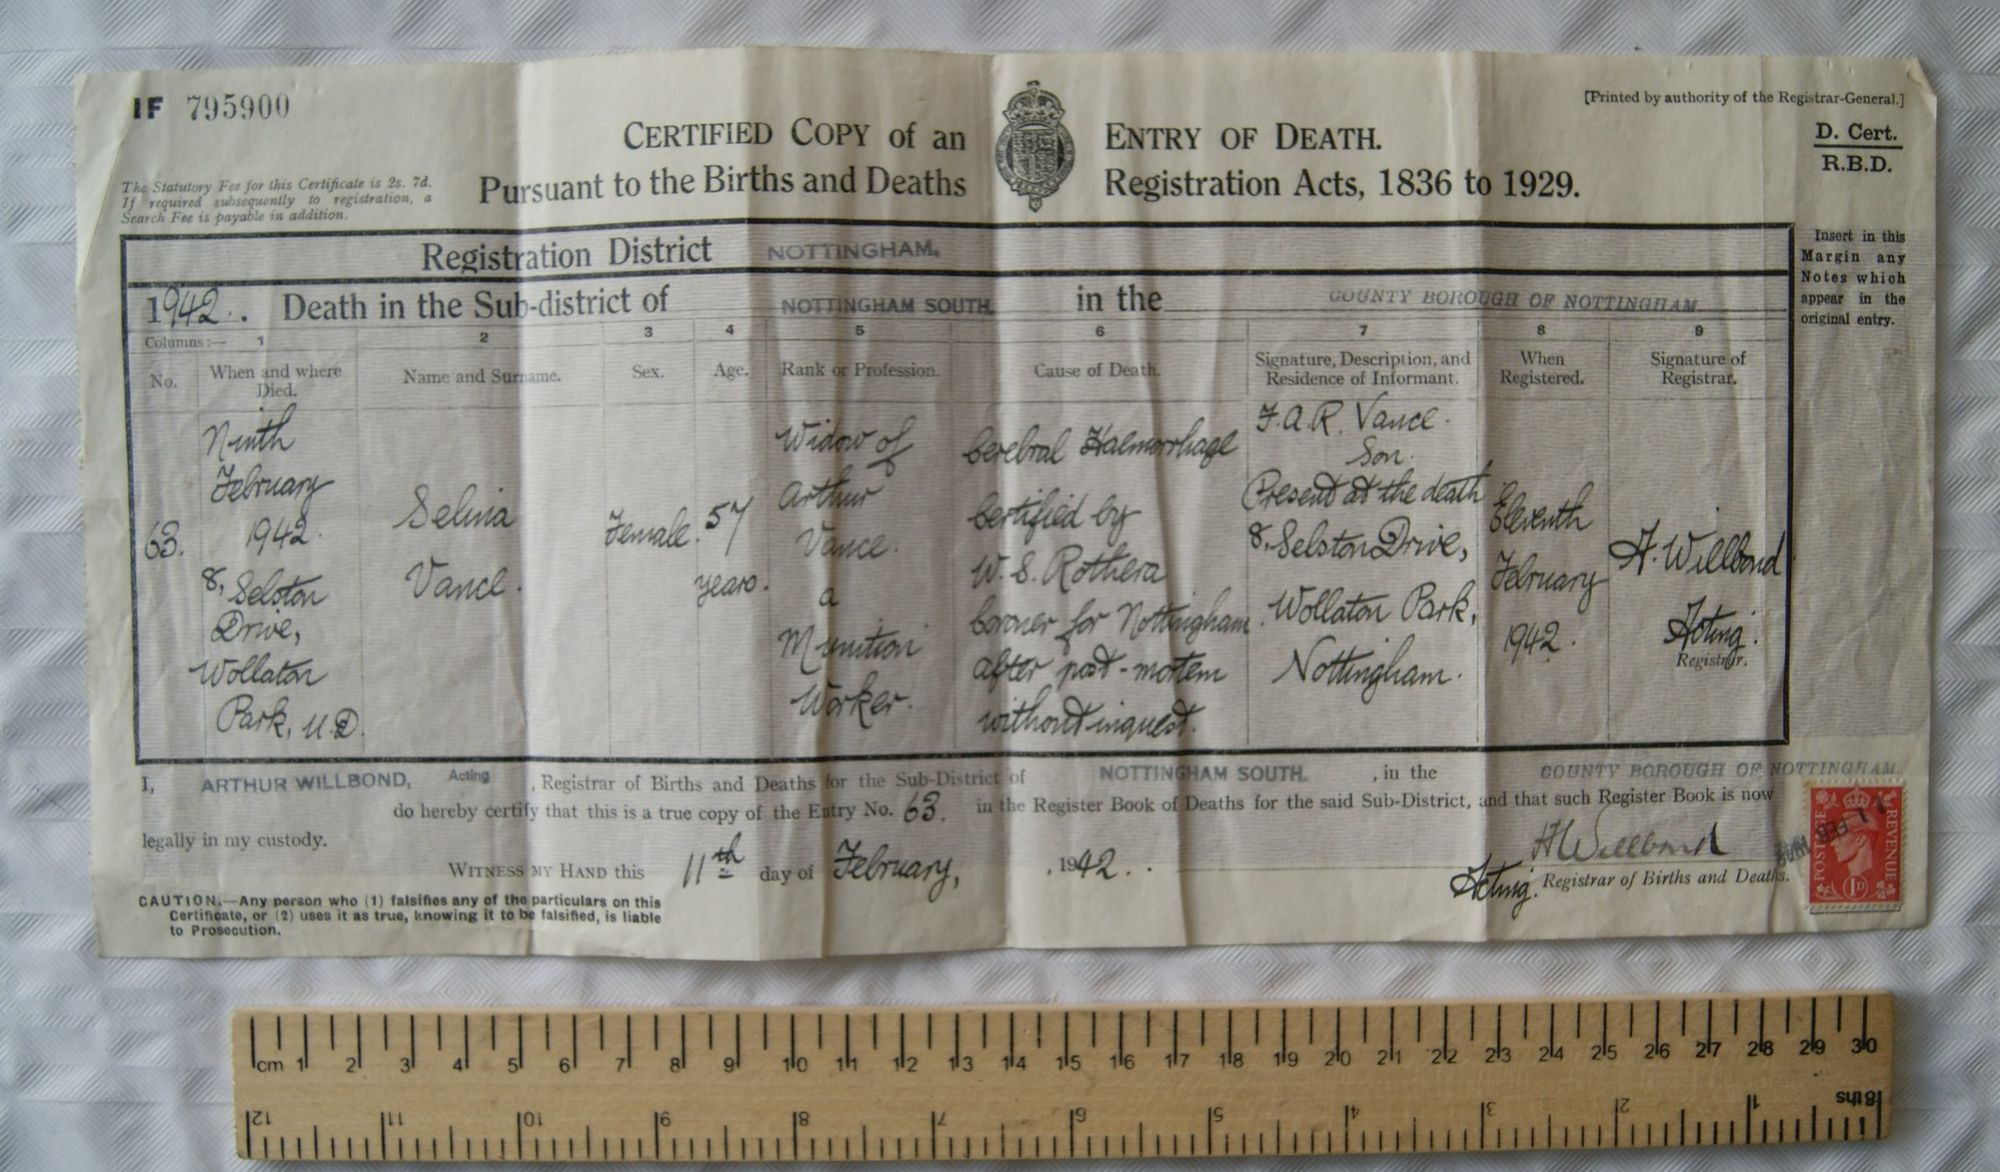 IF 795900
[Printed by authority of the Registrar-General.]
CERTIFIED COPY of an ENTRY OF DEATH.
Pursuant to the Births and Deaths Registration Acts, 1836 to 1929.
D. Cert.
R.B.D.
The Statutory Fee for this Certificate is 2s. 7d.
If required subsequently to registration, a
Search Fee is payable in addition.
Registration District NOTTINGHAM.
1942. . Death in the Sub-district of NOTTINGHAM SOUTH. in the COUNTY BOROUGH OF NOTTINGHAM
Insert in this
Margin any
Notes which
appear in the
original entry.
Columns:— 1 2 3 4 5 6 7 8 9
No.
When and where
Died.
Name and Surname.
Sex.
Age.
Rank or Profession.
Cause of Death.
Signature, Description, and
Residence of Informant.
When
Registered.
Signature of
Registrar.
63.
Ninth
February
1942.
8, Selston
Drive,
Wollaton
Park, U.D.
Selina
Vance.
Female.
57
years.
Widow of
Arthur
Vance.
a
Munition
Worker.
Cerebral Haemorrhage
Certified by
W. S. Rothera
Coroner for Nottingham.
after post-mortem
without inquest.
F.A.R. Vance.
Son.
Present at the death
8, Selston Drive,
Wollaton Park,
Nottingham.
Eleventh
February
1942.
A. Willbond
Acting.
Registrar.
I, ARTHUR WILLBOND, Acting , Registrar of Births and Deaths for the Sub-District of NOTTINGHAM SOUTH. , in the COUNTY BOROUGH OF NOTTINGHAM.
do hereby certify that this is a true copy of the Entry No. 63. in the Register Book of Deaths for the said Sub-District, and that such Register Book is now
legally in my custody.
WITNESS MY HAND this 11th day of February, , 1942. .
A Willbond
Acting. Registrar of Births and Deaths.
CAUTION.—Any person who (1) falsifies any of the particulars on this
Certificate, or (2) uses it as true, knowing it to be falsified, is liable
to Prosecution.
POSTAGE
REVENUE
1D
11 FEB 1942
cm 1 2 3 4 5 6 7 8 9 10 11 12 13 14 15 16 17 18 19 20 21 22 23 24 25 26 27 28 29 30
12 11 10 9 8 7 6 5 4 3 2 1 8ths